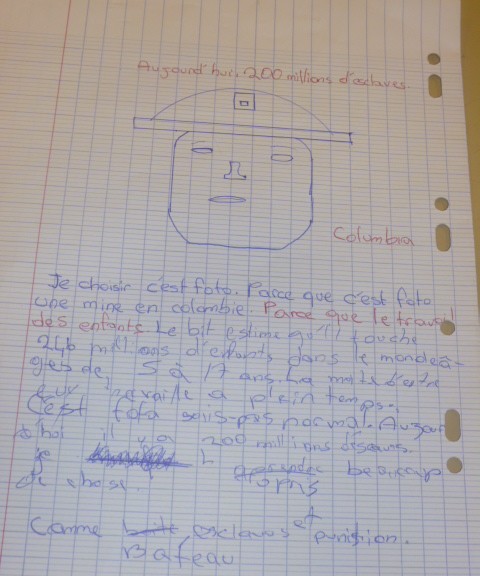 Aujourd'hui. 200 millions d'esclaves.
Columbia
Je choisir c'est foto. Parce que c'est foto
une mine en colombie. Parce que le travail
des enfants. Le bit estime qu'il touche
246 millions d'enfants dans le mondeâ-
gés de, 5 à 17 ans. La moité d'entre
eux travaille a plein temps.
C'est foto suis-pas normal. Aujour
d'hui il y a 200 millions
je beaucap
de chose.
Comme esclaves et punition.
Bateau